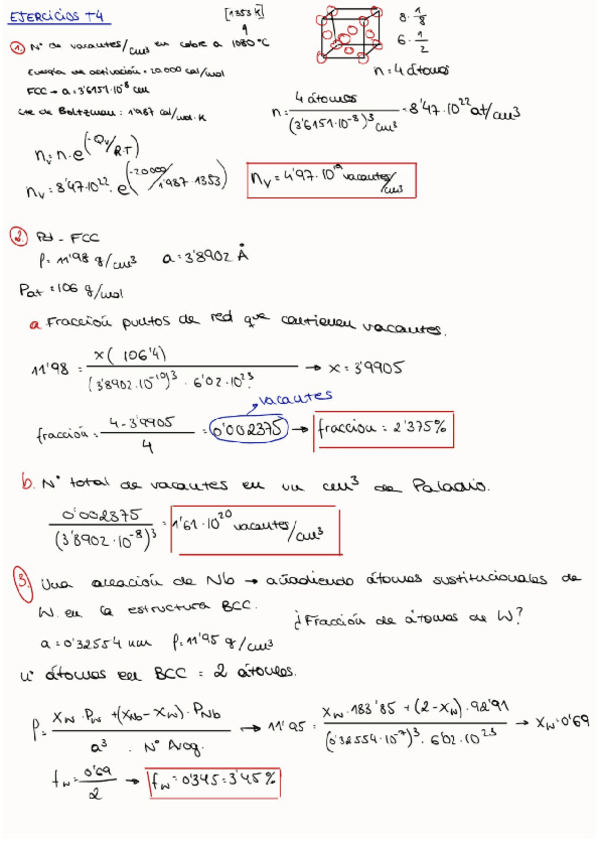 EJERCICIOS T4
[1353 K]
① Nº de vacantes/cm3 en cobre a 1080ºC
Energía de activación = 20.000 cal/mol
FCC → a = 3'6151·10^-8 cm
Cte de Boltzman: 1'987 cal/mol·K
8 · 1/8
6 · 1/2
n = 4 átomos
n = 4 átomos / (3'6151·10^-8)^3 cm3 = 8'47·10^22 at/cm3
nv = n·e^(-Qv/R·T)
nv = 8'47·10^22 · e^(-20000/1'987·1353)
nv = 4'97·10^19 vacantes/cm3
② Pd - FCC
ρ = 11'98 g/cm3 a = 3'8902 Å
Pat = 106 g/mol
a Fracción puntos de red que contienen vacantes.
11'98 = x(106'4) / (3'8902·10^-10)^3 · 6'02·10^23 → x = 3'9905
vacantes
fracción = 4-3'9905 / 4 = 0'002375 → fracción = 2'375%
b. Nº total de vacantes en un cm3 de Paladio.
0'002375 / (3'8902·10^-8)^3 = 1'61·10^20 vacantes/cm3
③. Una aleación de Nb → añadiendo átomos sustitucionales de
W. en la estructura BCC.
¿Fracción de átomos de W?
a = 0'32554 nm ρ = 11'95 g/cm3
nº átomos en BCC = 2 átomos.
ρ = xW · PW + (xNb - xW) · PNb / a^3 · Nº Avog. → 11'95 = xW·183'85 + (2-xW)·92'91 / (0'32554·10^-7)^3 · 6'02·10^23 → xW = 0'69
fW = 0'69 / 2 → fW = 0'345 = 3'45%